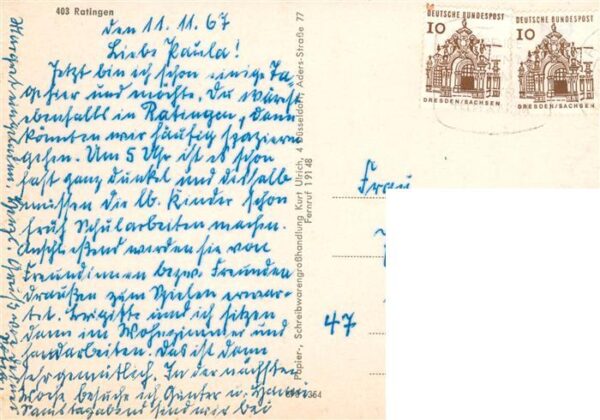 403 Ratingen
den 11. 11. 67
Liebe Paula!
Jetzt bin ich schon einige Ta-
ge hier und möchte, Du wärst
ebenfalls in Ratingen, dann
könnten wir häufig spazieren
gehen. Um 5 Uhr ist es schon
fast ganz dunkel und deshalb
müssen die lb. Kinder schon
früh Schularbeiten machen.
Anschließend werden sie von
Freundinnen bezw. Freunden
draußen zum Spielen erwar-
tet. Brigitte und ich sitzen
dann im Wohnzimmer und
handarbeiten. Das ist dann
sehr gemütlich. In der nächsten
Woche besuche ich Günter u.
Samstagabend sind wir bei
Papier-, Schreibwarengroßhandlung Kurt Ulrich, 4 Düsseldorf, Aders-Straße 77
Fernruf 1 91 48
DEUTSCHE BUNDESPOST
10
DRESDEN/SACHSEN
DEUTSCHE BUNDESPOST
10
DRESDEN/SACHSEN
Frau
47